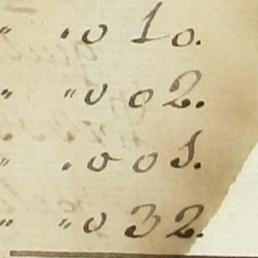 " " 0 10.
" " 0 02.
" " 0 01.
" " 0 32.